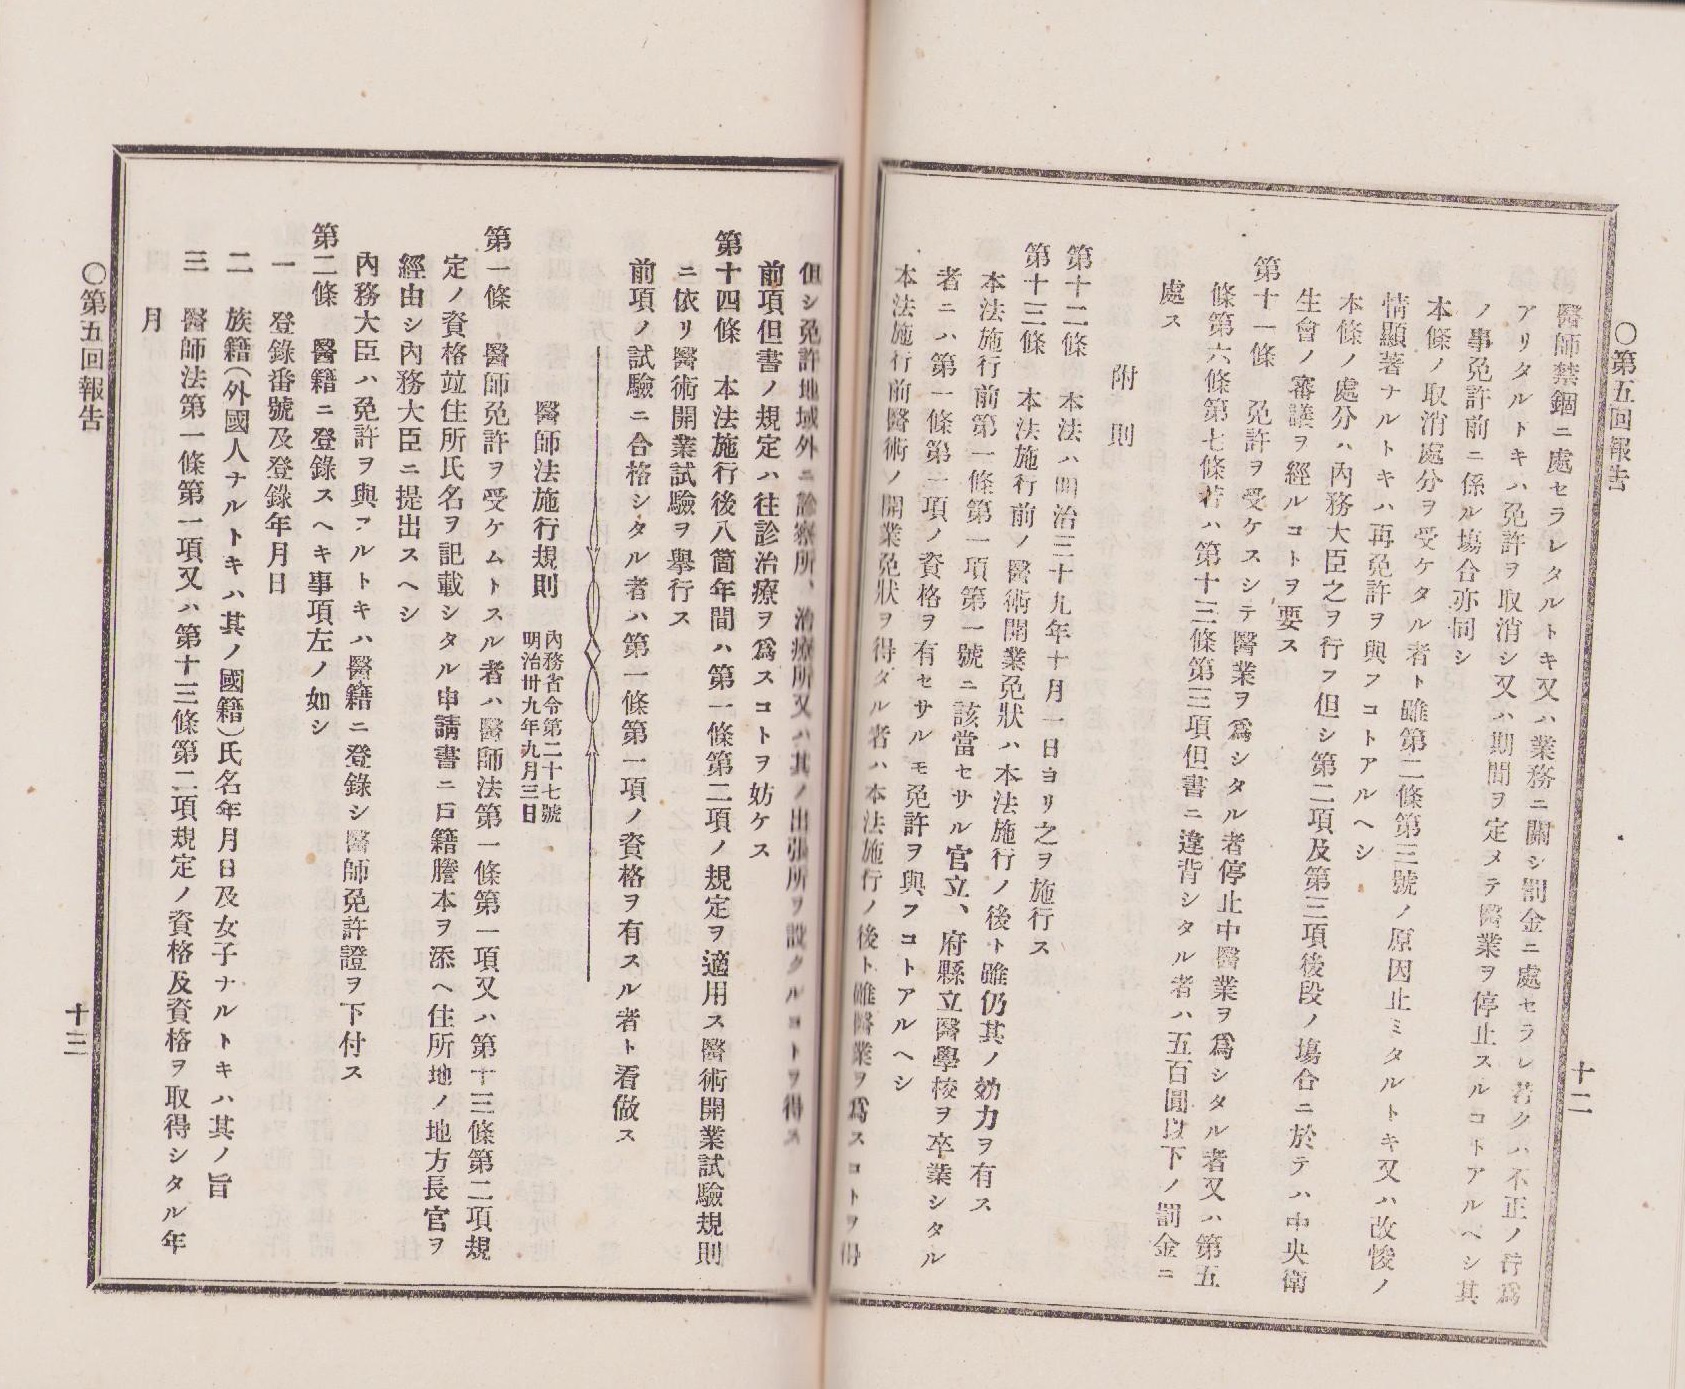 〇第五回報告
十二
醫師禁錮ニ處セラレタルトキ又ハ業務ニ關シ罰金ニ處セラレ若クハ不正ノ行爲
アリタルトキハ免許ヲ取消シ又ハ期間ヲ定メテ醫業ヲ停止スルコトアルヘシ其
ノ事免許前ニ係ル塲合亦同シ
本條ノ取消處分ヲ受ケタル者ト雖第二條第三號ノ原因止ミタルトキ又ハ改悛ノ
情顯著ナルトキハ再免許ヲ與フコトアルヘシ
本條ノ處分ハ內務大臣之ヲ行フ但シ第二項及第三項後段ノ塲合ニ於テハ中央衛
生會ノ審議ヲ經ルコトヲ要ス
第十一條 免許ヲ受ケスシテ醫業ヲ爲シタル者停止中醫業ヲ爲シタル者又ハ第五
條第六條第七條若ハ第十三條第三項但書ニ違背シタル者ハ五百圓以下ノ罰金ニ
處ス
附則
第十二條 本法ハ明治三十九年十月一日ヨリ之ヲ施行ス
第十三條 本法施行前ノ醫術開業免狀ハ本法施行ノ後ト雖仍其ノ効力ヲ有ス
本法施行前第一條第一項第一號ニ該當セサル官立、府縣立醫學校ヲ卒業シタル
者ニハ第一條第一項ノ資格ヲ有セサルモ免許ヲ與フコトアルヘシ
本法施行前醫術ノ開業免狀ヲ得タル者ハ本法施行ノ後ト雖醫業ヲ爲スコトヲ得
但シ免許地域外ニ診察所、治療所又ハ其ノ出張所ヲ設クルコトヲ得ス
前項但書ノ規定ハ往診治療ヲ爲スコトヲ妨ケス
第十四條 本法施行後八箇年間ハ第一條第二項ノ規定ヲ適用ス醫術開業試驗規則
ニ依リ醫術開業試驗ヲ擧行ス
前項ノ試驗ニ合格シタル者ハ第一條第一項ノ資格ヲ有スル者ト看做ス
醫師法施行規則
內務省令第二十七號
明治卅九年九月三日
第一條 醫師免許ヲ受ケムトスル者ハ醫師法第一條第一項又ハ第十三條第二項規
定ノ資格竝住所氏名ヲ記載シタル申請書ニ戶籍謄本ヲ添ヘ住所地ノ地方長官ヲ
經由シ內務大臣ニ提出スヘシ
內務大臣ハ免許ヲ與フルトキハ醫籍ニ登錄シ醫師免許證ヲ下付ス
第二條 醫籍ニ登錄スヘキ事項左ノ如シ
一 登錄番號及登錄年月日
二 族籍(外國人ナルトキハ其ノ國籍)氏名年月日及女子ナルトキハ其ノ旨
三 醫師法第一條第一項又ハ第十三條第二項規定ノ資格及資格ヲ取得シタル年
月
〇第五回報告
十三